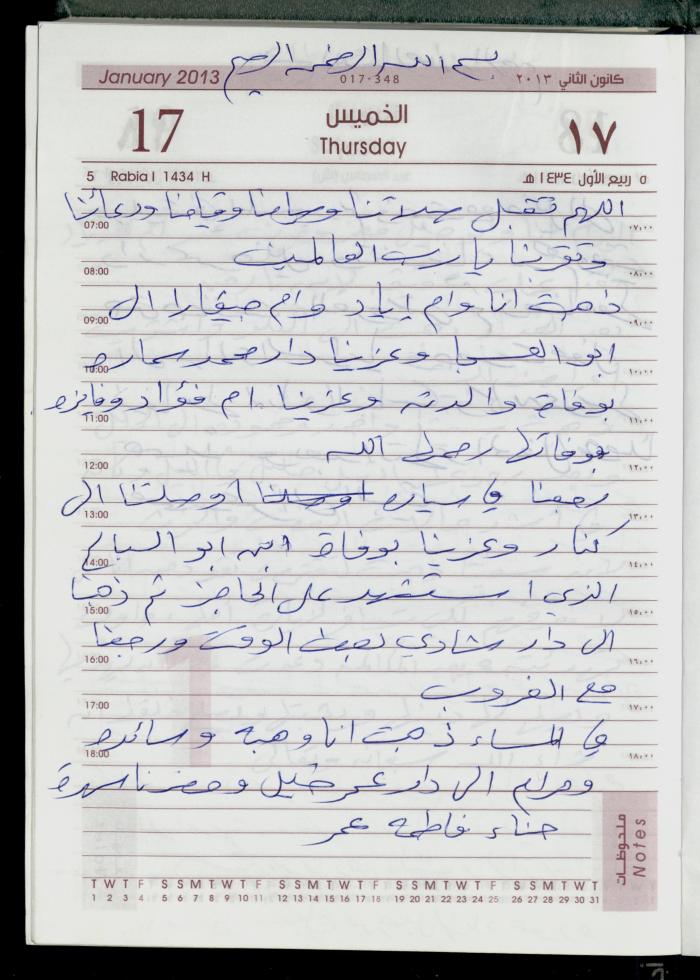 بسم الله الرحمن الرحيم
January 2013 017-348 كانون الثاني ٢٠١٣
17 الخميس ١٧
Thursday
5 Rabia I 1434 H ٥ ربيع الأول ١٤٣٤ هـ
اللهم تقبل صلاتنا وصيامنا وقيامنا ودعائنا
07:00 ٠٧:٠٠
وتقربنا يا رب العالمين
08:00 ٠٨:٠٠
ذهبت انا وام إياد وام جيفارا ال
09:00 ٠٩:٠٠
ابو العسجا وعزينا دار محمد سماره
10:00 ١٠:٠٠
بوفاة والدته وعزينا ام فؤاد وفايزه
11:00 ١١:٠٠
بوفاتها رحمها الله
12:00 ١٢:٠٠
رجعنا في سياره اوصلتنا اوصلتنا ال
13:00 ١٣:٠٠
كنار وعزينا بوفاة ابن ابو السباع
14:00 ١٤:٠٠
الذي استشهد على الحاجز ثم ذهبنا
15:00 ١٥:٠٠
ال دار شادي لبعض الوقت ورجعنا
16:00 ١٦:٠٠
مع الغروب
17:00 ١٧:٠٠
في المساء ذهبت انا وهبه وسائده
18:00 ١٨:٠٠
ومرام الى دار عمر خليل وحضرنا سهرة
حناء فاطمه عمر
ملحوظات
Notes
T W T F S S M T W T F S S M T W T F S S M T W T F S S M T W T
1 2 3 4 5 6 7 8 9 10 11 12 13 14 15 16 17 18 19 20 21 22 23 24 25 26 27 28 29 30 31